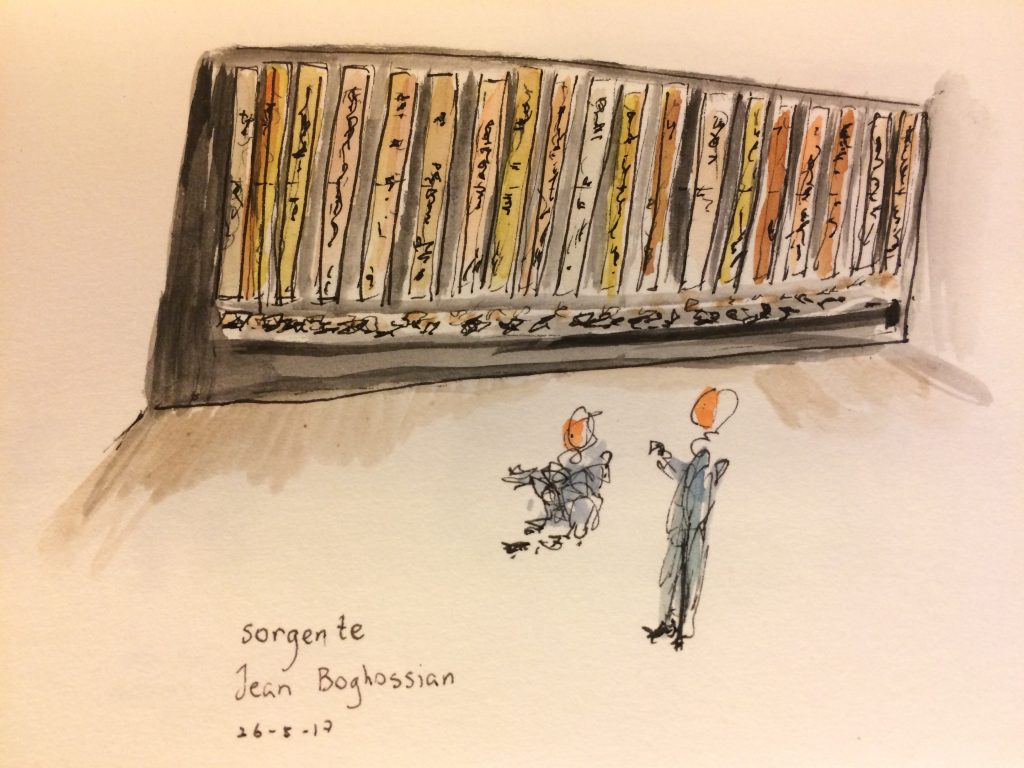 sorgente
Jean Boghossian
26-5-17